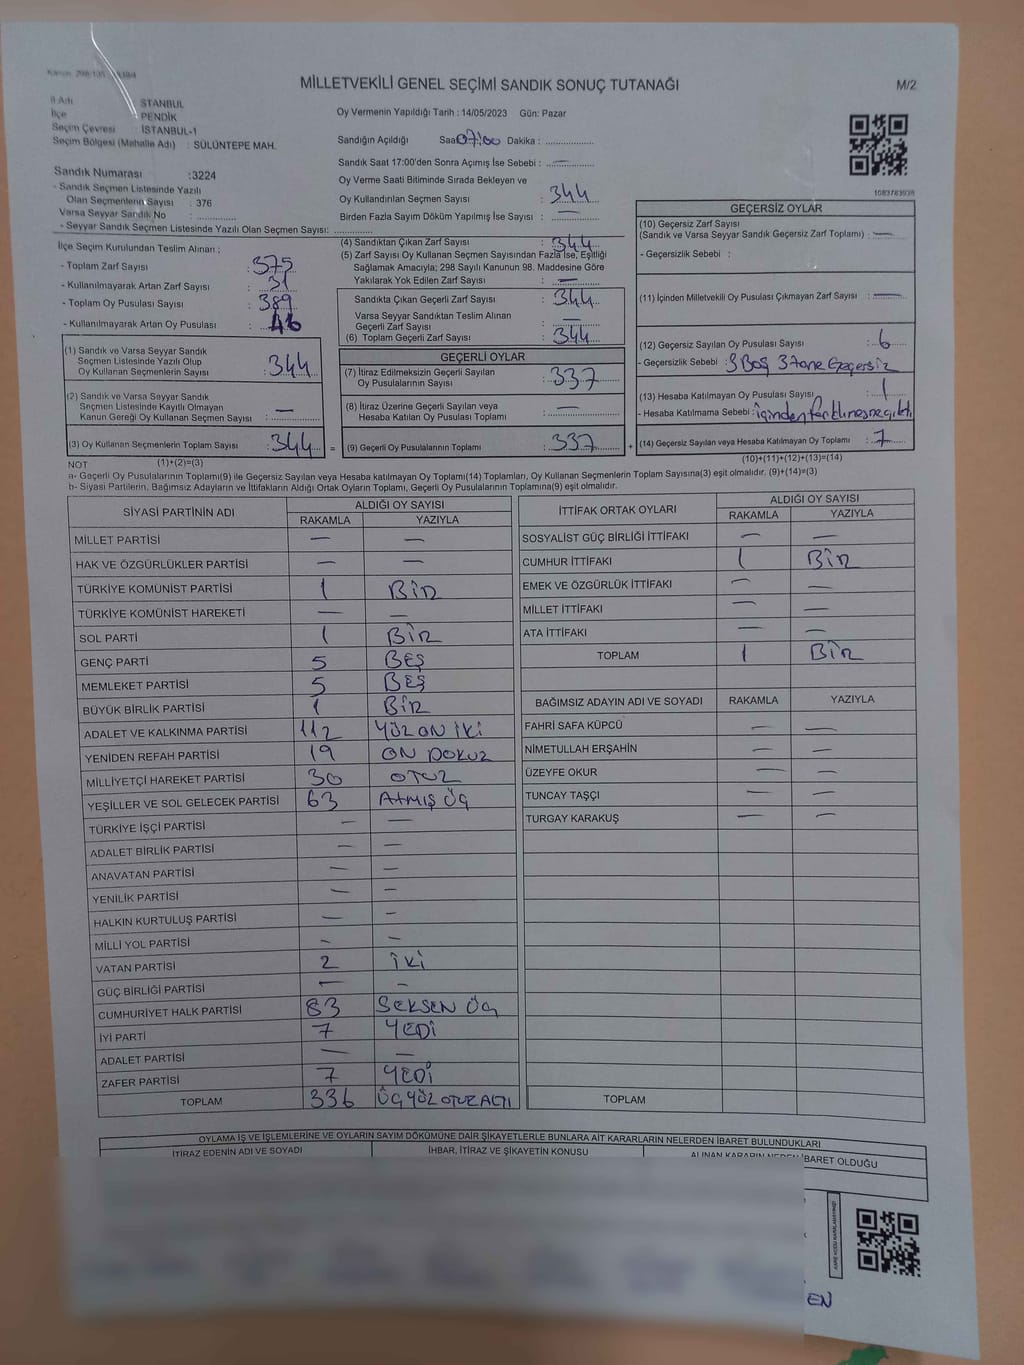 MİLLETVEKİLİ GENEL SEÇİMİ SANDIK SONUÇ TUTANAĞI
M/2
İl Adı : İSTANBUL
İlçe : PENDİK
Seçim Çevresi : İSTANBUL-1
Seçim Bölgesi (Mahalle Adı) : SÜLÜNTEPE MAH.
Sandık Numarası :3224
- Sandık Seçmen Listesinde Yazılı
Olan Seçmenlerin Sayısı : 376
Varsa Seyyar Sandık No : ..............
- Seyyar Sandık Seçmen Listesinde Yazılı Olan Seçmen Sayısı: ..............
Oy Vermenin Yapıldığı Tarih : 14/05/2023 Gün: Pazar
Sandığın Açıldığı Saat 07:00 Dakika : ..............
Sandık Saat 17:00'den Sonra Açımış İse Sebebi : —
Oy Verme Saati Bitiminde Sırada Bekleyen ve
Oy Kullandırılan Seçmen Sayısı : 344
Birden Fazla Sayım Döküm Yapılmış İse Sayısı : —
1083783938
İlçe Seçim Kurulundan Teslim Alınan ;
- Toplam Zarf Sayısı : 375
- Kullanılmayarak Artan Zarf Sayısı : 31
- Toplam Oy Pusulası Sayısı : 389
- Kullanılmayarak Artan Oy Pusulası :
(1) Sandık ve Varsa Seyyar Sandık
Seçmen Listesinde Yazılı Olup
Oy Kullanan Seçmenlerin Sayısı : 344
(2) Sandık ve Varsa Seyyar Sandık
Seçmen Listesinde Kayıtlı Olmayan
Kanun Gereği Oy Kullanan Seçmen Sayısı : —
(3) Oy Kullanan Seçmenlerin Toplam Sayısı : 344 =
(1)+(2)=(3)
(4) Sandıktan Çıkan Zarf Sayısı : 344
(5) Zarf Sayısı Oy Kullanan Seçmen Sayısından Fazla İse, Eşitliği
Sağlamak Amacıyla; 298 Sayılı Kanunun 98. Maddesine Göre
Yakılarak Yok Edilen Zarf Sayısı : —
Sandıkta Çıkan Geçerli Zarf Sayısı : 344
Varsa Seyyar Sandıktan Teslim Alınan
Geçerli Zarf Sayısı : —
(6) Toplam Geçerli Zarf Sayısı : 344
GEÇERLİ OYLAR
(7) İtiraz Edilmeksizin Geçerli Sayılan
Oy Pusulalarının Sayısı : 337
(8) İtiraz Üzerine Geçerli Sayılan veya
Hesaba Katılan Oy Pusulası Toplamı : —
(9) Geçerli Oy Pusulalarının Toplamı : 337 +
GEÇERSİZ OYLAR
(10) Geçersiz Zarf Sayısı
(Sandık ve Varsa Seyyar Sandık Geçersiz Zarf Toplamı) : —
- Geçersizlik Sebebi :
(11) İçinden Milletvekili Oy Pusulası Çıkmayan Zarf Sayısı : —
(12) Geçersiz Sayılan Oy Pusulası Sayısı : 6
- Geçersizlik Sebebi : 3 Boş 3 tane Geçersiz
(13) Hesaba Katılmayan Oy Pusulası Sayısı : 1
- Hesaba Katılmama Sebebi : içinden farklı nesne çıktı
(14) Geçersiz Sayılan veya Hesaba Katılmayan Oy Toplamı : 7
(10)+(11)+(12)+(13)=(14)
NOT
a- Geçerli Oy Pusulalarının Toplamı(9) ile Geçersiz Sayılan veya Hesaba katılmayan Oy Toplamı(14) Toplamları, Oy Kullanan Seçmenlerin Toplam Sayısına(3) eşit olmalıdır. (9)+(14)=(3)
b- Siyasi Partilerin, Bağımsız Adayların ve İttifakların Aldığı Ortak Oyların Toplamı, Geçerli Oy Pusulalarının Toplamına(9) eşit olmalıdır.
SİYASİ PARTİNİN ADI ALDIĞI OY SAYISI
RAKAMLA YAZIYLA
MİLLET PARTİSİ — —
HAK VE ÖZGÜRLÜKLER PARTİSİ — —
TÜRKİYE KOMÜNİST PARTİSİ 1 BİR
TÜRKİYE KOMÜNİST HAREKETİ — —
SOL PARTİ 1 BİR
GENÇ PARTİ 5 BEŞ
MEMLEKET PARTİSİ 5 BEŞ
BÜYÜK BİRLİK PARTİSİ 1 BİR
ADALET VE KALKINMA PARTİSİ 112 YÜZ ON İKİ
YENİDEN REFAH PARTİSİ 19 ON DOKUZ
MİLLİYETÇİ HAREKET PARTİSİ 30 OTUZ
YEŞİLLER VE SOL GELECEK PARTİSİ 63 ATMIŞ ÜÇ
TÜRKİYE İŞÇİ PARTİSİ — —
ADALET BİRLİK PARTİSİ — —
ANAVATAN PARTİSİ — —
YENİLİK PARTİSİ — —
HALKIN KURTULUŞ PARTİSİ — —
MİLLİ YOL PARTİSİ — —
VATAN PARTİSİ 2 İKİ
GÜÇ BİRLİĞİ PARTİSİ — —
CUMHURİYET HALK PARTİSİ 83 SEKSEN ÜÇ
İYİ PARTİ 7 YEDİ
ADALET PARTİSİ — —
ZAFER PARTİSİ 7 YEDİ
TOPLAM 336 ÜÇYÜZ OTUZ ALTI
İTTİFAK ORTAK OYLARI ALDIĞI OY SAYISI
RAKAMLA YAZIYLA
SOSYALİST GÜÇ BİRLİĞİ İTTİFAKI — —
CUMHUR İTTİFAKI 1 BİR
EMEK VE ÖZGÜRLÜK İTTİFAKI — —
MİLLET İTTİFAKI — —
ATA İTTİFAKI — —
TOPLAM 1 BİR
BAĞIMSIZ ADAYIN ADI VE SOYADI RAKAMLA YAZIYLA
FAHRİ SAFA KÜPCÜ — —
NİMETULLAH ERŞAHİN — —
ÜZEYFE OKUR — —
TUNCAY TAŞÇI — —
TURGAY KARAKUŞ — —
TOPLAM
OYLAMA İŞ VE İŞLEMLERİNE VE OYLARIN SAYIM DÖKÜMÜNE DAİR ŞİKAYETLERLE BUNLARA AİT KARARLARIN NELERDEN İBARET BULUNDUKLARI
İTİRAZ EDENİN ADI VE SOYADI İHBAR, İTİRAZ VE ŞİKAYETİN KONUSU ALINAN KARARIN NEDEN İBARET OLDUĞU
EN